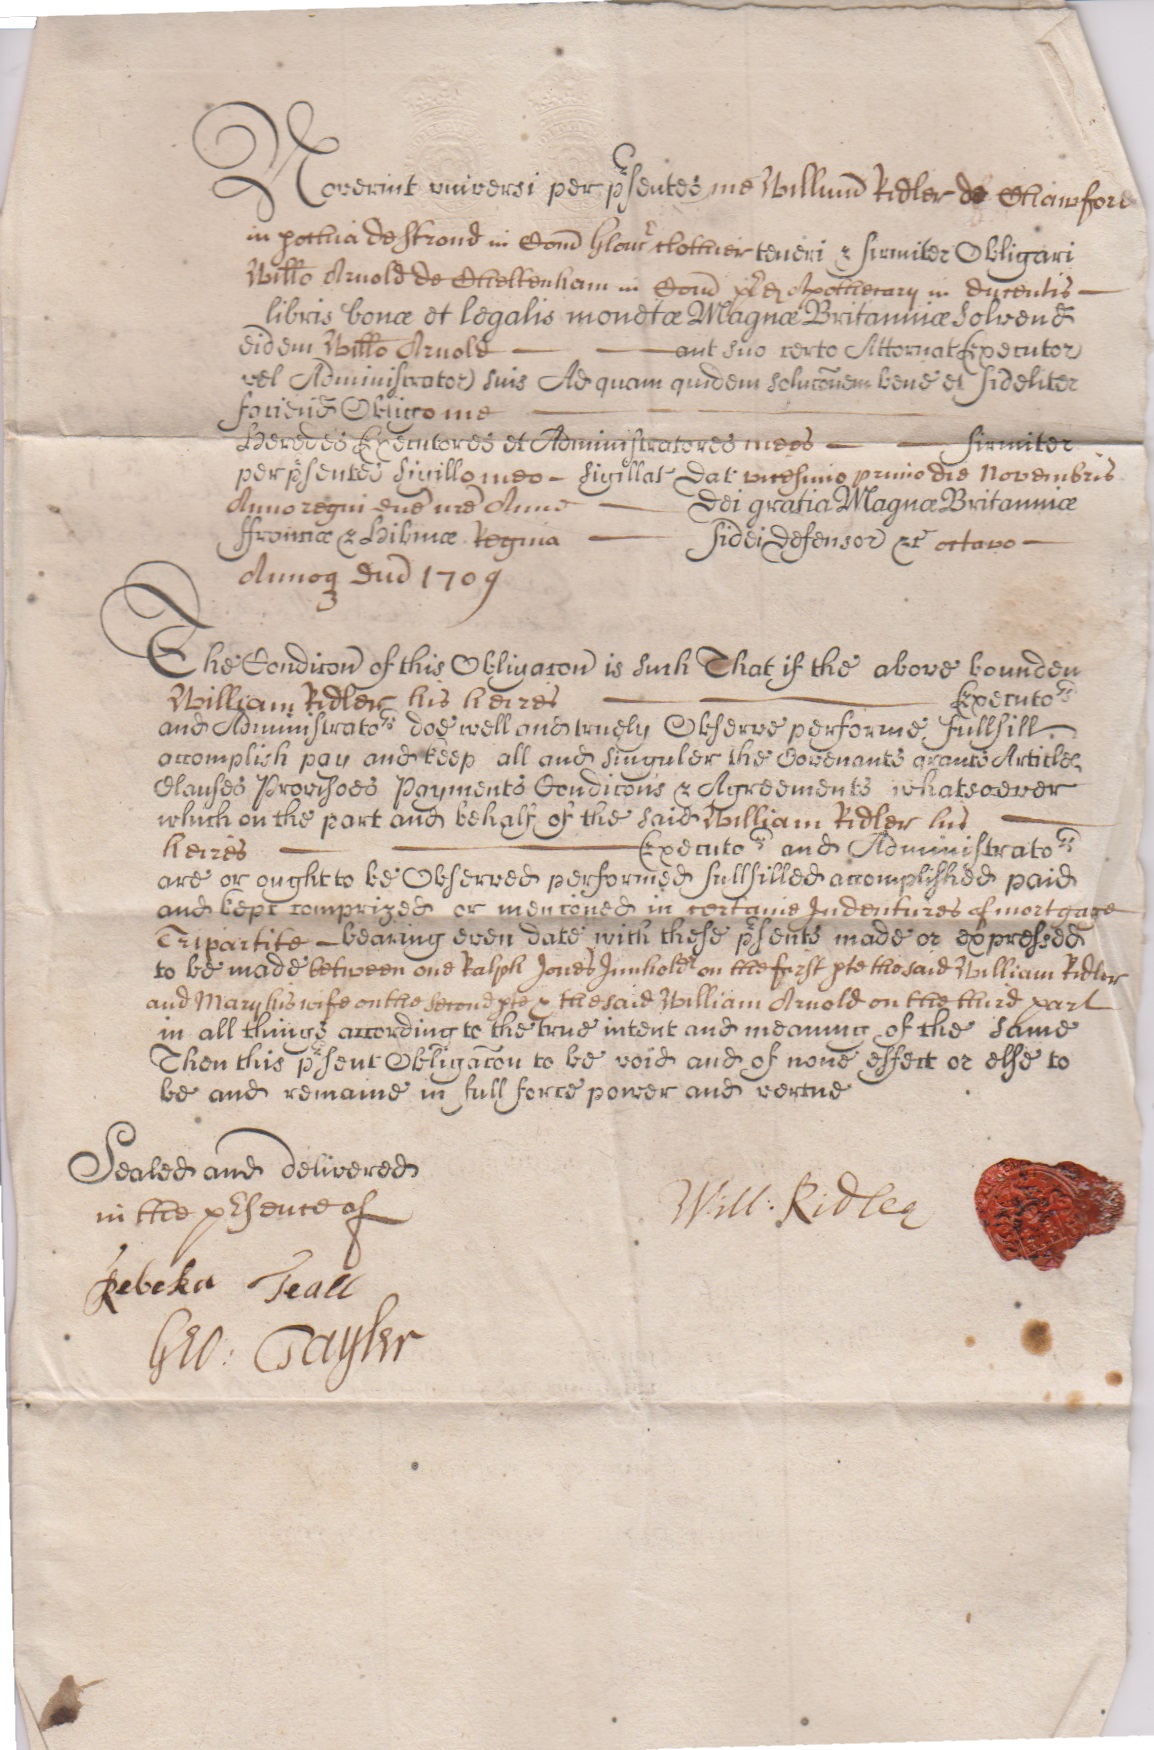 Noverint universi per p̃sentes me Willum̃ Ridler de Chawford
in pochia de Strond in Com̃ Glouc̃ Clothier teneri & firmiter Obligari
Willo Arnold de Cheltenham in Com̃ p̃d Apothecary in ducentis —
libris bonæ et legalis monetæ Magnæ Britanniæ Solvend
eidem Willo Arnold — — aut suo certo Attornat Executor
vel Administrator suis Ad quam quidem soluc̃onem bene et fideliter
faciend̃ Obligo me —
Heredes Executores et Administratores meos — — firmiter
per p̃sentes Sigillo meo – Sigillat Dat vicesimo primo die Novembris
Anno regni dn̄e nr̄e Anne — Dei gratia Magnæ Britanniæ
ffranciæ & Hib̃niæ Regina — fidei defensor &c̃ octavo —
Annoq Dn̄i 1709
The Condic̃on of this Obligac̃on is such That if the above bounden
William Ridler his heires — — Executors
and Administrators doe well and truely Observe performe fullfill
accomplish pay and keep all and singuler the Covenants grants Articles
Clauses Provisoes Payments Condic̃ons & Agreements whatsoever
which on the part and behalf of the said William Ridler his —
heires — — Executors and Administrators
are or ought to be Observed performed fullfilled accomplished paid
and kept comprized or menc̃oned in certaine Indentures of mortgage
Tripartite – bearing even date with these p̃sents made or expressed
to be made between one Ralph Jones Innholder on the first pte the said William Ridler
and Mary his wife on the second pte & the said William Arnold on the third part
in all things according to the true intent and meaning of the same
Then this p̃sent Obligac̃on to be void and of none effect or else to
be and remaine in full force power and vertue
Sealed and delivered
in the p̃sence of
Will: Ridler
Rebeka Teall
Geo: Tayler